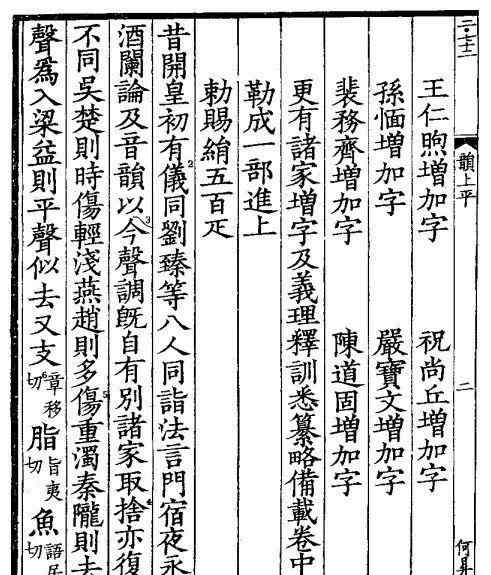 韻上平 二 何昇
王仁煦增加字 祝尚丘增加字
孫愐增加字 嚴寶文增加字
裴務齊增加字 陳道固增加字
更有諸家增字及義理釋訓悉纂略備載卷中
勒成一部進上
勅賜絹五百疋
昔開皇初有儀同劉臻等八人同詣法言門宿夜永
酒闌論及音韻以今聲調旣自有別諸家取捨亦復
不同吳楚則時傷輕淺燕趙則多傷重濁秦隴則去
聲爲入梁益則平聲似去又支章移切脂旨夷切魚語居切